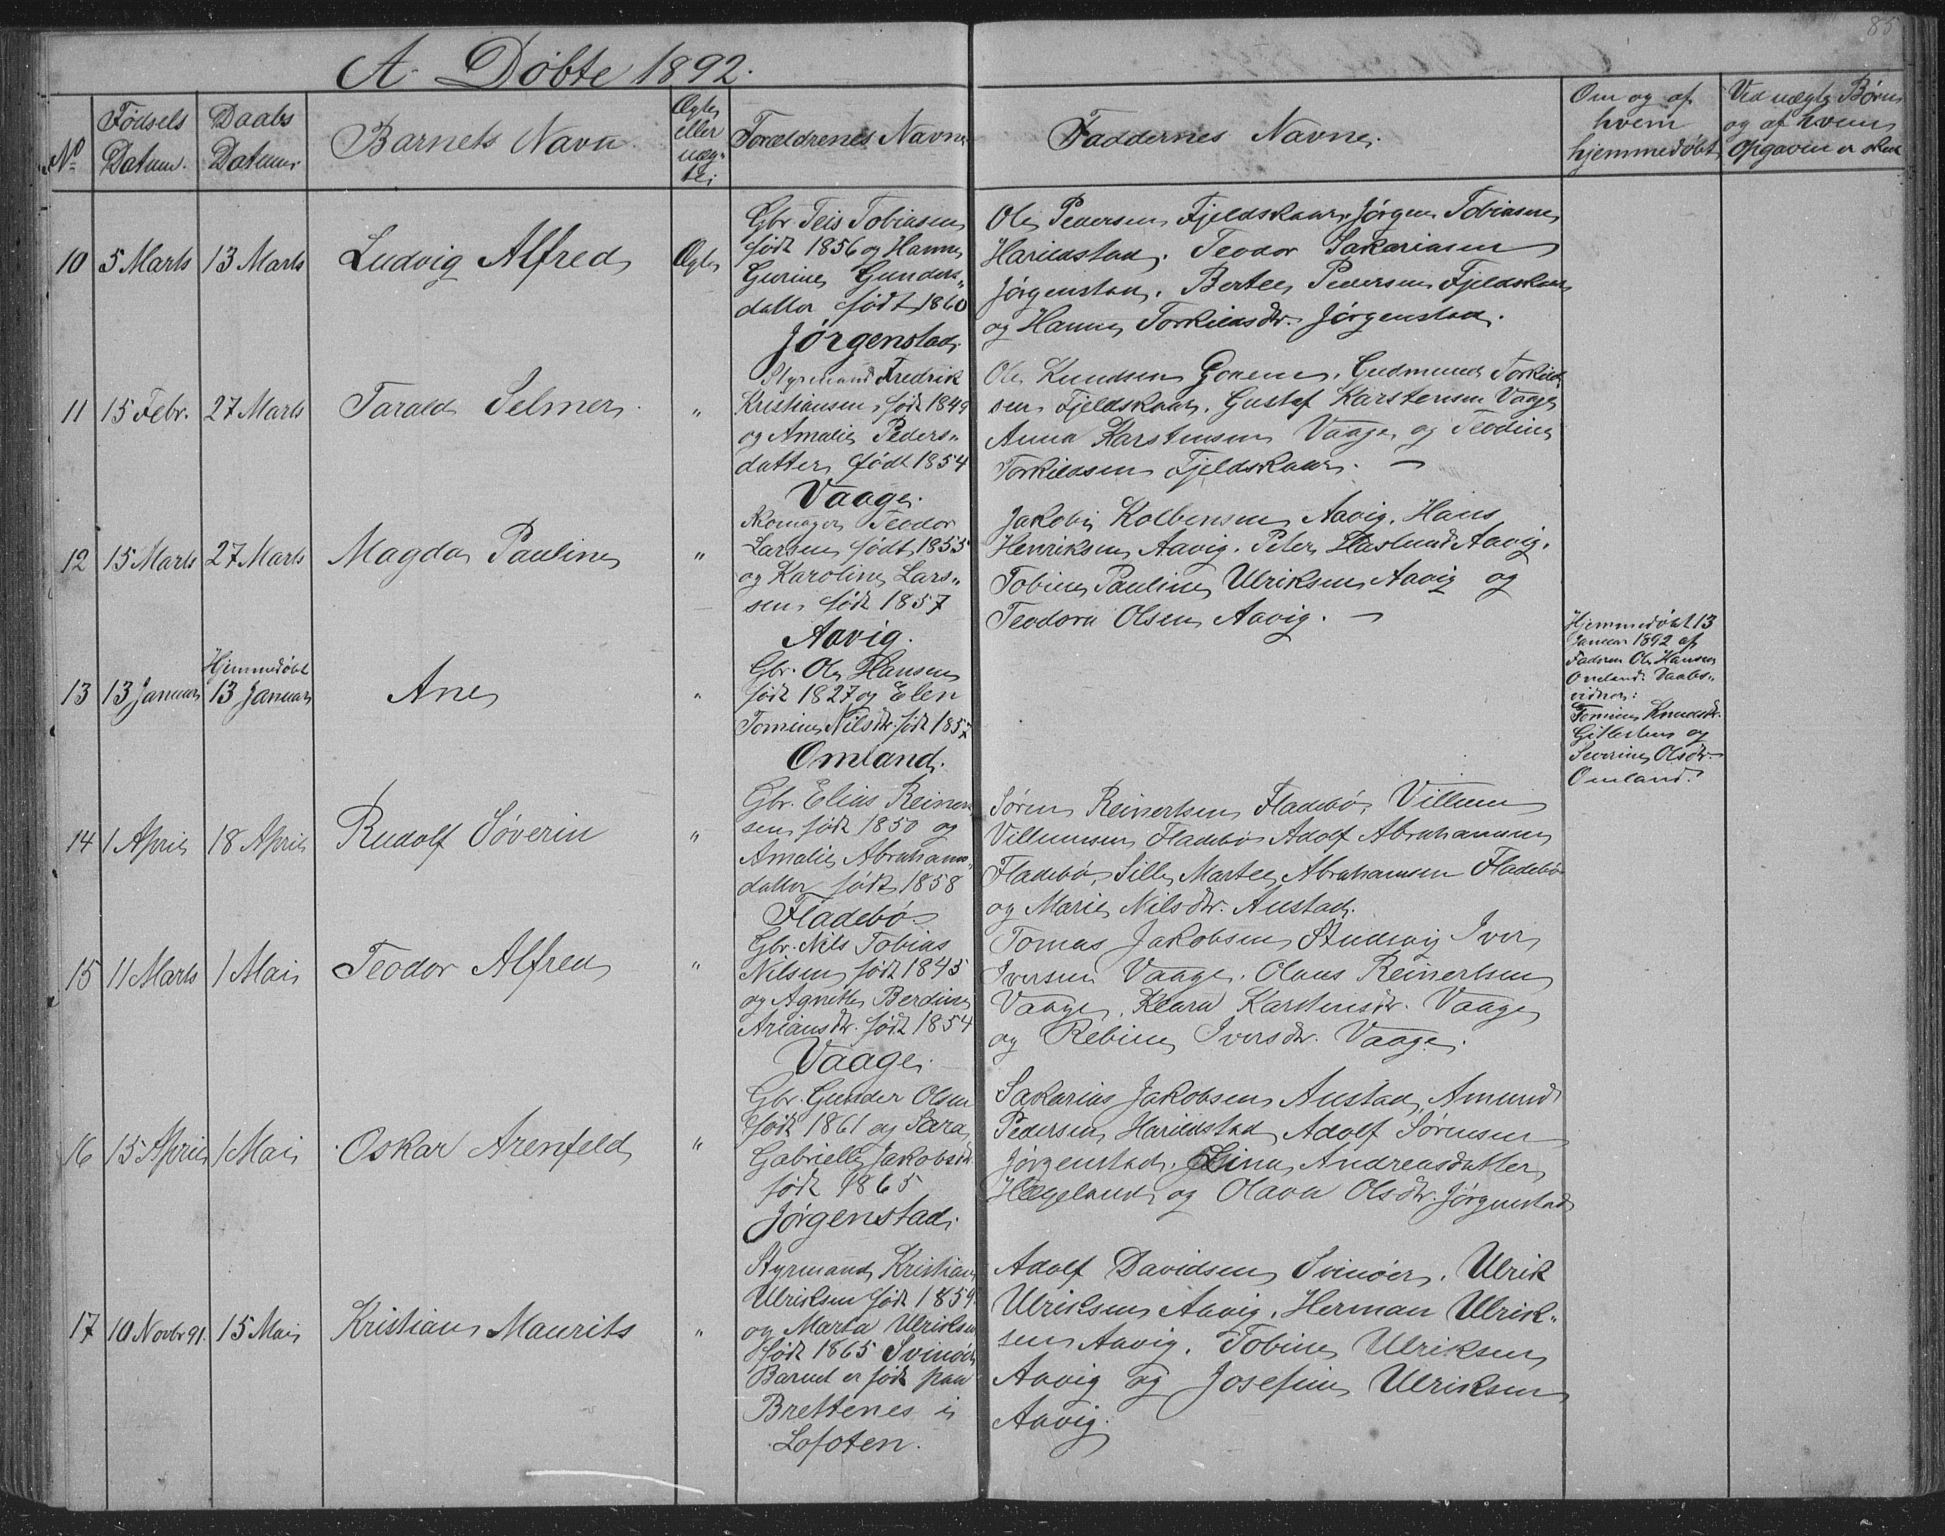 85
A. Døbte 1892.
No
Fødsels Datum.
Daabs Datum
Barnets Navn
Ægte eller uægte
Forældrenes Navne
Faddernes Navne.
Om og af hvem hjemmedøbt
Ved uægte Børn og af hvem Opgaven er skeet
10
5 Marts
13 Marts
Ludvig Alfred
Ægte
Gbr. Teis Tobiasen
født 1856 og Hanne
Gurine Gunders-
datter født 1860
Jørgenstad.
Ole Pedersen Fjeldskaar, Jørgen Tobiasen
Harildstad. Teodor Sakariasen
Jørgenstad. Bertee Pedersen Fjeldskaar
og Hanne Torkildsdtr. Jørgenstad.
11
15 Febr.
27 Marts
Tarald Selmer
"
Styrmand Fredrik
Kristiansen født 1849
og Amalie Peders-
datter født 1854
Vaage.
Ole Knudsen Gonem. Gudmund Torkild-
sen Fjeldskaar. Gustaf Karstensen Vaage
Anna Karstensen Vaage og Teodine
Torkildsen Fjeldskaar. —
12
15 Marts
27 Marts
Magda Pauline
"
Skomager Teodor
Larsen født 1855
og Karoline Lars-
sen født 1857
Aavig.
Jakobe Kolbensen Aavig. Hans
Henriksen Aavig. Peter Haslund Aavig.
Tobine Pauline Ulriksen Aavig og
Teodora Olsen Aavig. —
13
13 Januar
Hjemmedøbt
13 Januar
Ane
"
Gbr. Ole Hansen
født 1827 og Elen
Tomine Nilsdtr. født 1857
Omland.
Hjemmedøbt 13
Januar 1892 af
Faderen Ole Hansen
Omland. Daabs-
vidner:
Tomine Knudsdtr.
Gitlesten og
Severine Olsdtr.
Omland.
14
1 April
18 April
Rudolf Söverin
"
Gbr. Elias Reinert
sen født 1850 og
Amalie Abrahams-
datter født 1858
Fladebø
Søren Reinertsen Fladebø, Villum
Villumsen Fladebø Adolf Abrahamsen
Fladebø, Sille Martee Abrahamsen Fladebø
og Marie Nilsdtr. Austad.
15
11 Marts
1 Mai
Teodor Alfred
"
Gbr. Nils Tobias
Nilsen født 1845
og Agnethe Berdine
Ariansdtr. født 1854
Vaage.
Tomas Jakobsen Studevig Iver
Iversen Vaage. Olaus Reinertsen
Vaage. Klara Karstensdtr. Vaage
og Rebine Iversdtr. Vaage.
16
15 April
1 Mai
Oskar Arenfeld
"
Gbr. Gunder Olsen
født 1861 og Sara
Gabrielle Jakobsdtr.
født 1865
Jørgenstad.
Sakarias Jakobsen Austad, Amund
Pedersen Harildstad Adolf Sørensen
Jørgenstad. Lina Andreasdatter
Hægeland og Olava Olsdtr. Jørgenstad
17
10 Novbr 91.
15 Mai
Kristian Maurits
"
Styrmand Kristian
Ulriksen født 1859
og Marta Ulriksen
født 1865 Svinøer
Barnet er født paa
Brettenes i
Lofoten.
Adolf Davidsen Svinøer. Ulrik
Ulriksen Aavig. Herman Ulrik-
sen Aavig. Tobine Ulriksen
Aavig og Josefine Ulriksen
Aavig.